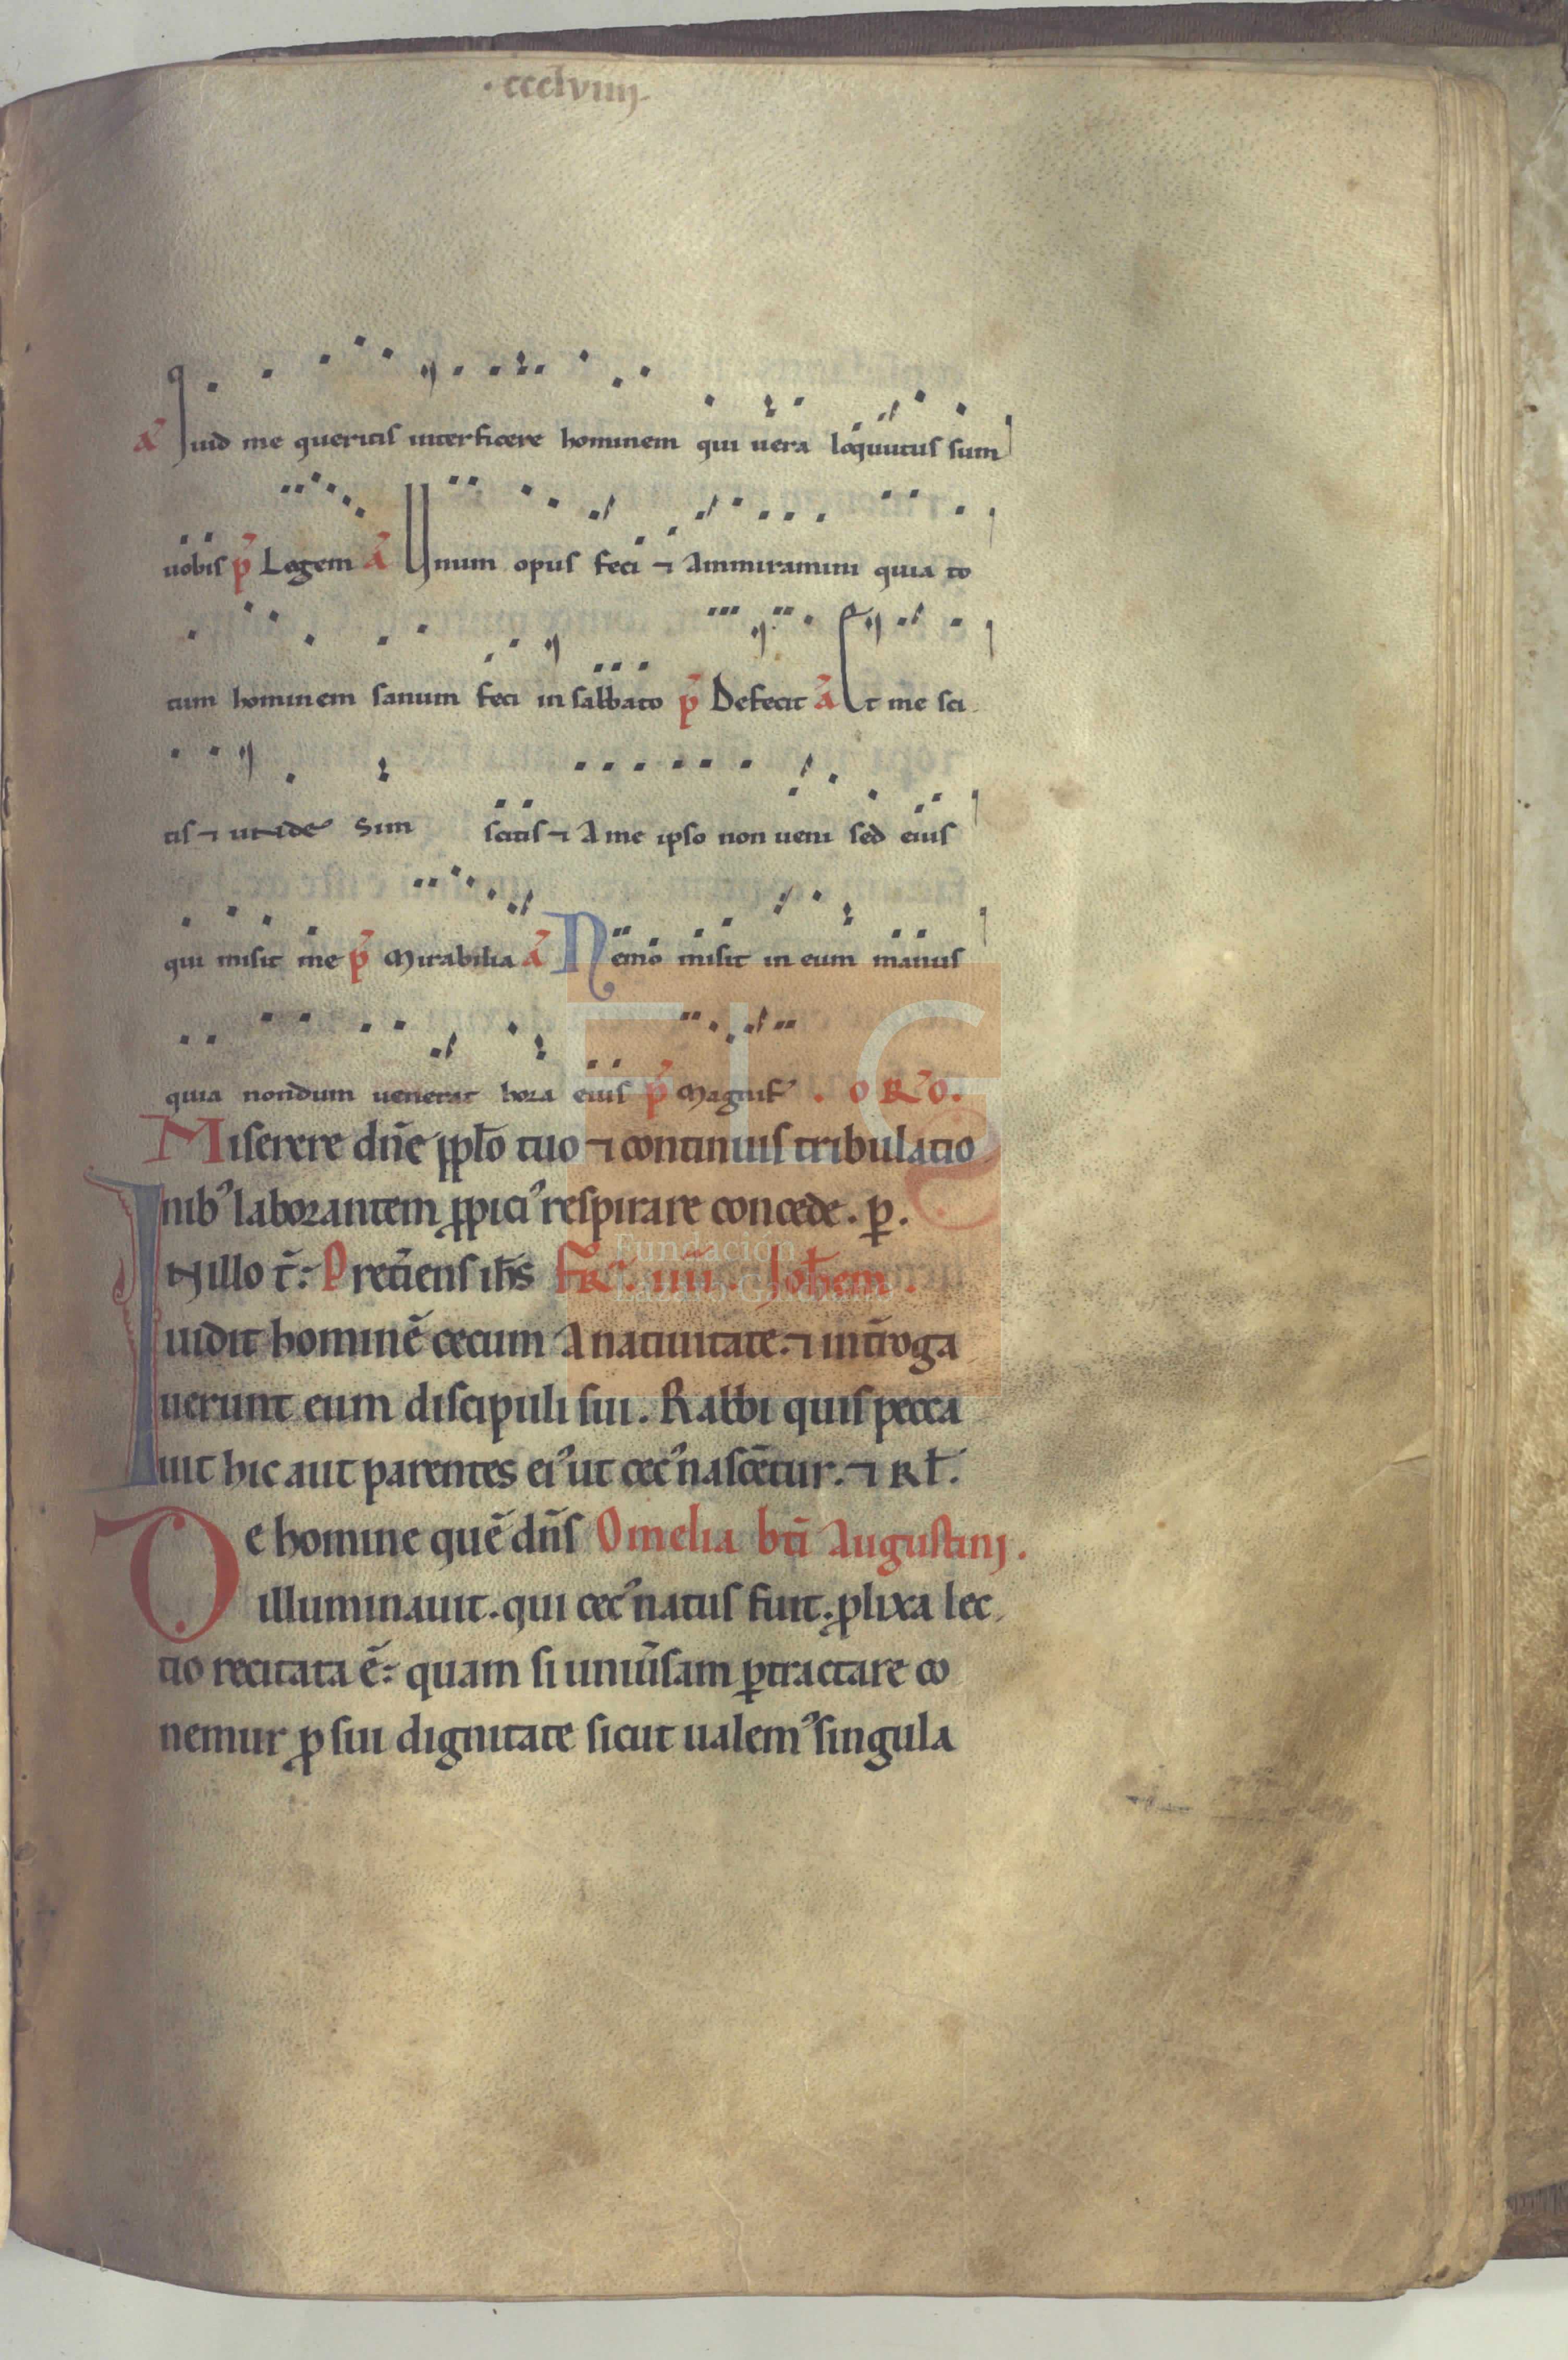 ·ccclviiij·
A᷍ Quid me queritis interficere hominem qui uera loquutus sum
uobis p̃ Legem A᷍ Unum opus feci ⁊ Ammiramini quia to
tum hominem sanum feci in sabbato p̃ Defecit A᷍ Et me sci
tis ⁊ unde Sim scitis ⁊ A me ipso non ueni sed eius
qui misit me p̃ Mirabilia A᷍ Nemo misit in eum manus
quia nondum uenerat hora eius p̃ Magnif̃ . ORõ.
Miserere dñe ꝓpło tuo ⁊ continuis tribulatio
nibꝰ laborantem ꝓpiciꝰ respirare concede. ꝑ.
IN illo t̃. Pret̃iens ihs̄ F̃R. iiii. Joh̄em.
uidit hominẽ cecum A natiuitate. ⁊ int̃roga
uerunt eum discipuli sui. Rabbi quis pecca
uit hic aut parentes eiꝰ ut cecꝰ nascẽtur. ⁊ Rł.
De homine quẽ dñs Omelia bti̅ Augustinj.
illuminauit. qui cecꝰ natus fuit. ꝓlixa lec
tio recitata ẽ. quam si uniũsam ꝑtractare co
nemur ꝓ sui dignitate sicut ualemꝰ singula
FLG
Fundación
Lázaro Galdiano